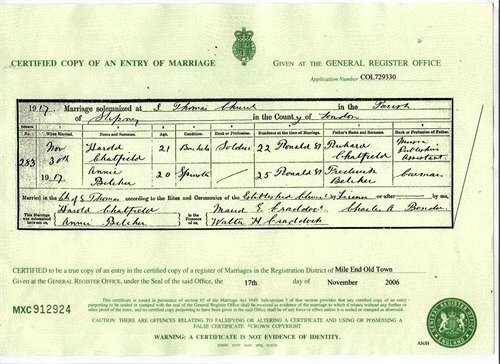 CERTIFIED COPY OF AN ENTRY OF MARRIAGE
GIVEN AT THE GENERAL REGISTER OFFICE
Application Number COL729330
1917. Marriage solemnized at S. Thomas Church in the Parish
of Stepney in the County of London
No. When Married. Name and Surname. Age. Condition. Rank or Profession. Residence at the time of Marriage. Father's Name and Surname. Rank or Profession of Father.
253 Nov 30th 1917 Harold Chatfield 21 Bachelor Soldier 22 Ronald St Richard Chatfield Assistant
Annie Belcher 20 Spinster 25 Ronald St Frederick Belcher Carman
Married in the Ch. of S. Thomas according to the Rites and Ceremonies of the Established Church by License or after by me,
This Marriage was solemnized between us, Harold Chatfield Annie Belcher in the Presence of us, Maud E. Craddock Walter H Craddock Charles A Bender
CERTIFIED to be a true copy of an entry in the certified copy of a register of Marriages in the Registration District of Mile End Old Town
Given at the GENERAL REGISTER OFFICE, under the Seal of the said Office, the 17th day of November 2006
MXC 912924
This certificate is issued in pursuance of section 65 of the Marriage Act 1949. Sub-section 3 of that section provides that any certified copy of an entry
purporting to be sealed or stamped with the seal of the General Register Office shall be received as evidence of the marriage to which it relates without any further or
other proof of the entry, and no certified copy purporting to have been given in the said Office shall be of any force or effect unless it is sealed or stamped as aforesaid.
CAUTION: THERE ARE OFFENCES RELATING TO FALSIFYING OR ALTERING A CERTIFICATE AND USING OR POSSESSING A
FALSE CERTIFICATE ©CROWN COPYRIGHT
WARNING: A CERTIFICATE IS NOT EVIDENCE OF IDENTITY.
GENERAL REGISTER OFFICE ENGLAND